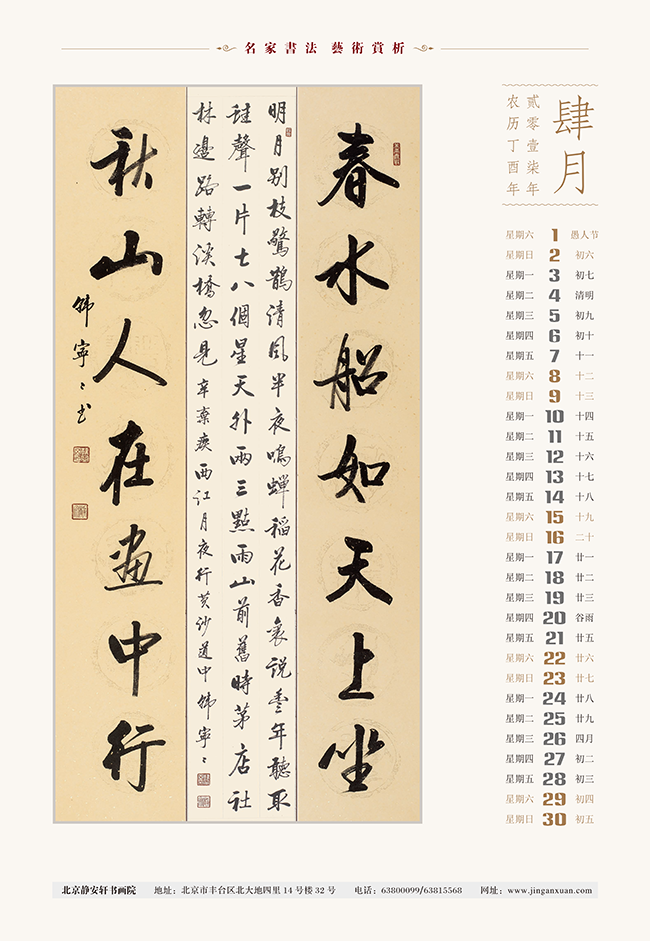 名家書法 藝術賞析
春水船如天上坐
明月别枝驚鵲清風半夜鳴蟬稻花香裏説豊年聽取
蛙聲一片七八個星天外兩三點雨山前舊時茅店社
林邊路轉溪橋忽見 辛棄疾西江月夜行黄沙道中韩寧〻
秋山人在畫中行
韩寧〻书
肆月
貳零壹柒年
农历丁酉年
星期六 1 愚人节
星期日 2 初六
星期一 3 初七
星期二 4 清明
星期三 5 初九
星期四 6 初十
星期五 7 十一
星期六 8 十二
星期日 9 十三
星期一 10 十四
星期二 11 十五
星期三 12 十六
星期四 13 十七
星期五 14 十八
星期六 15 十九
星期日 16 二十
星期一 17 廿一
星期二 18 廿二
星期三 19 廿三
星期四 20 谷雨
星期五 21 廿五
星期六 22 廿六
星期日 23 廿七
星期一 24 廿八
星期二 25 廿九
星期三 26 四月
星期四 27 初二
星期五 28 初三
星期六 29 初四
星期日 30 初五
北京静安轩书画院 地址：北京市丰台区北大地四里 14 号楼 32 号 电话：63800099/63815568 网址：www.jinganxuan.com